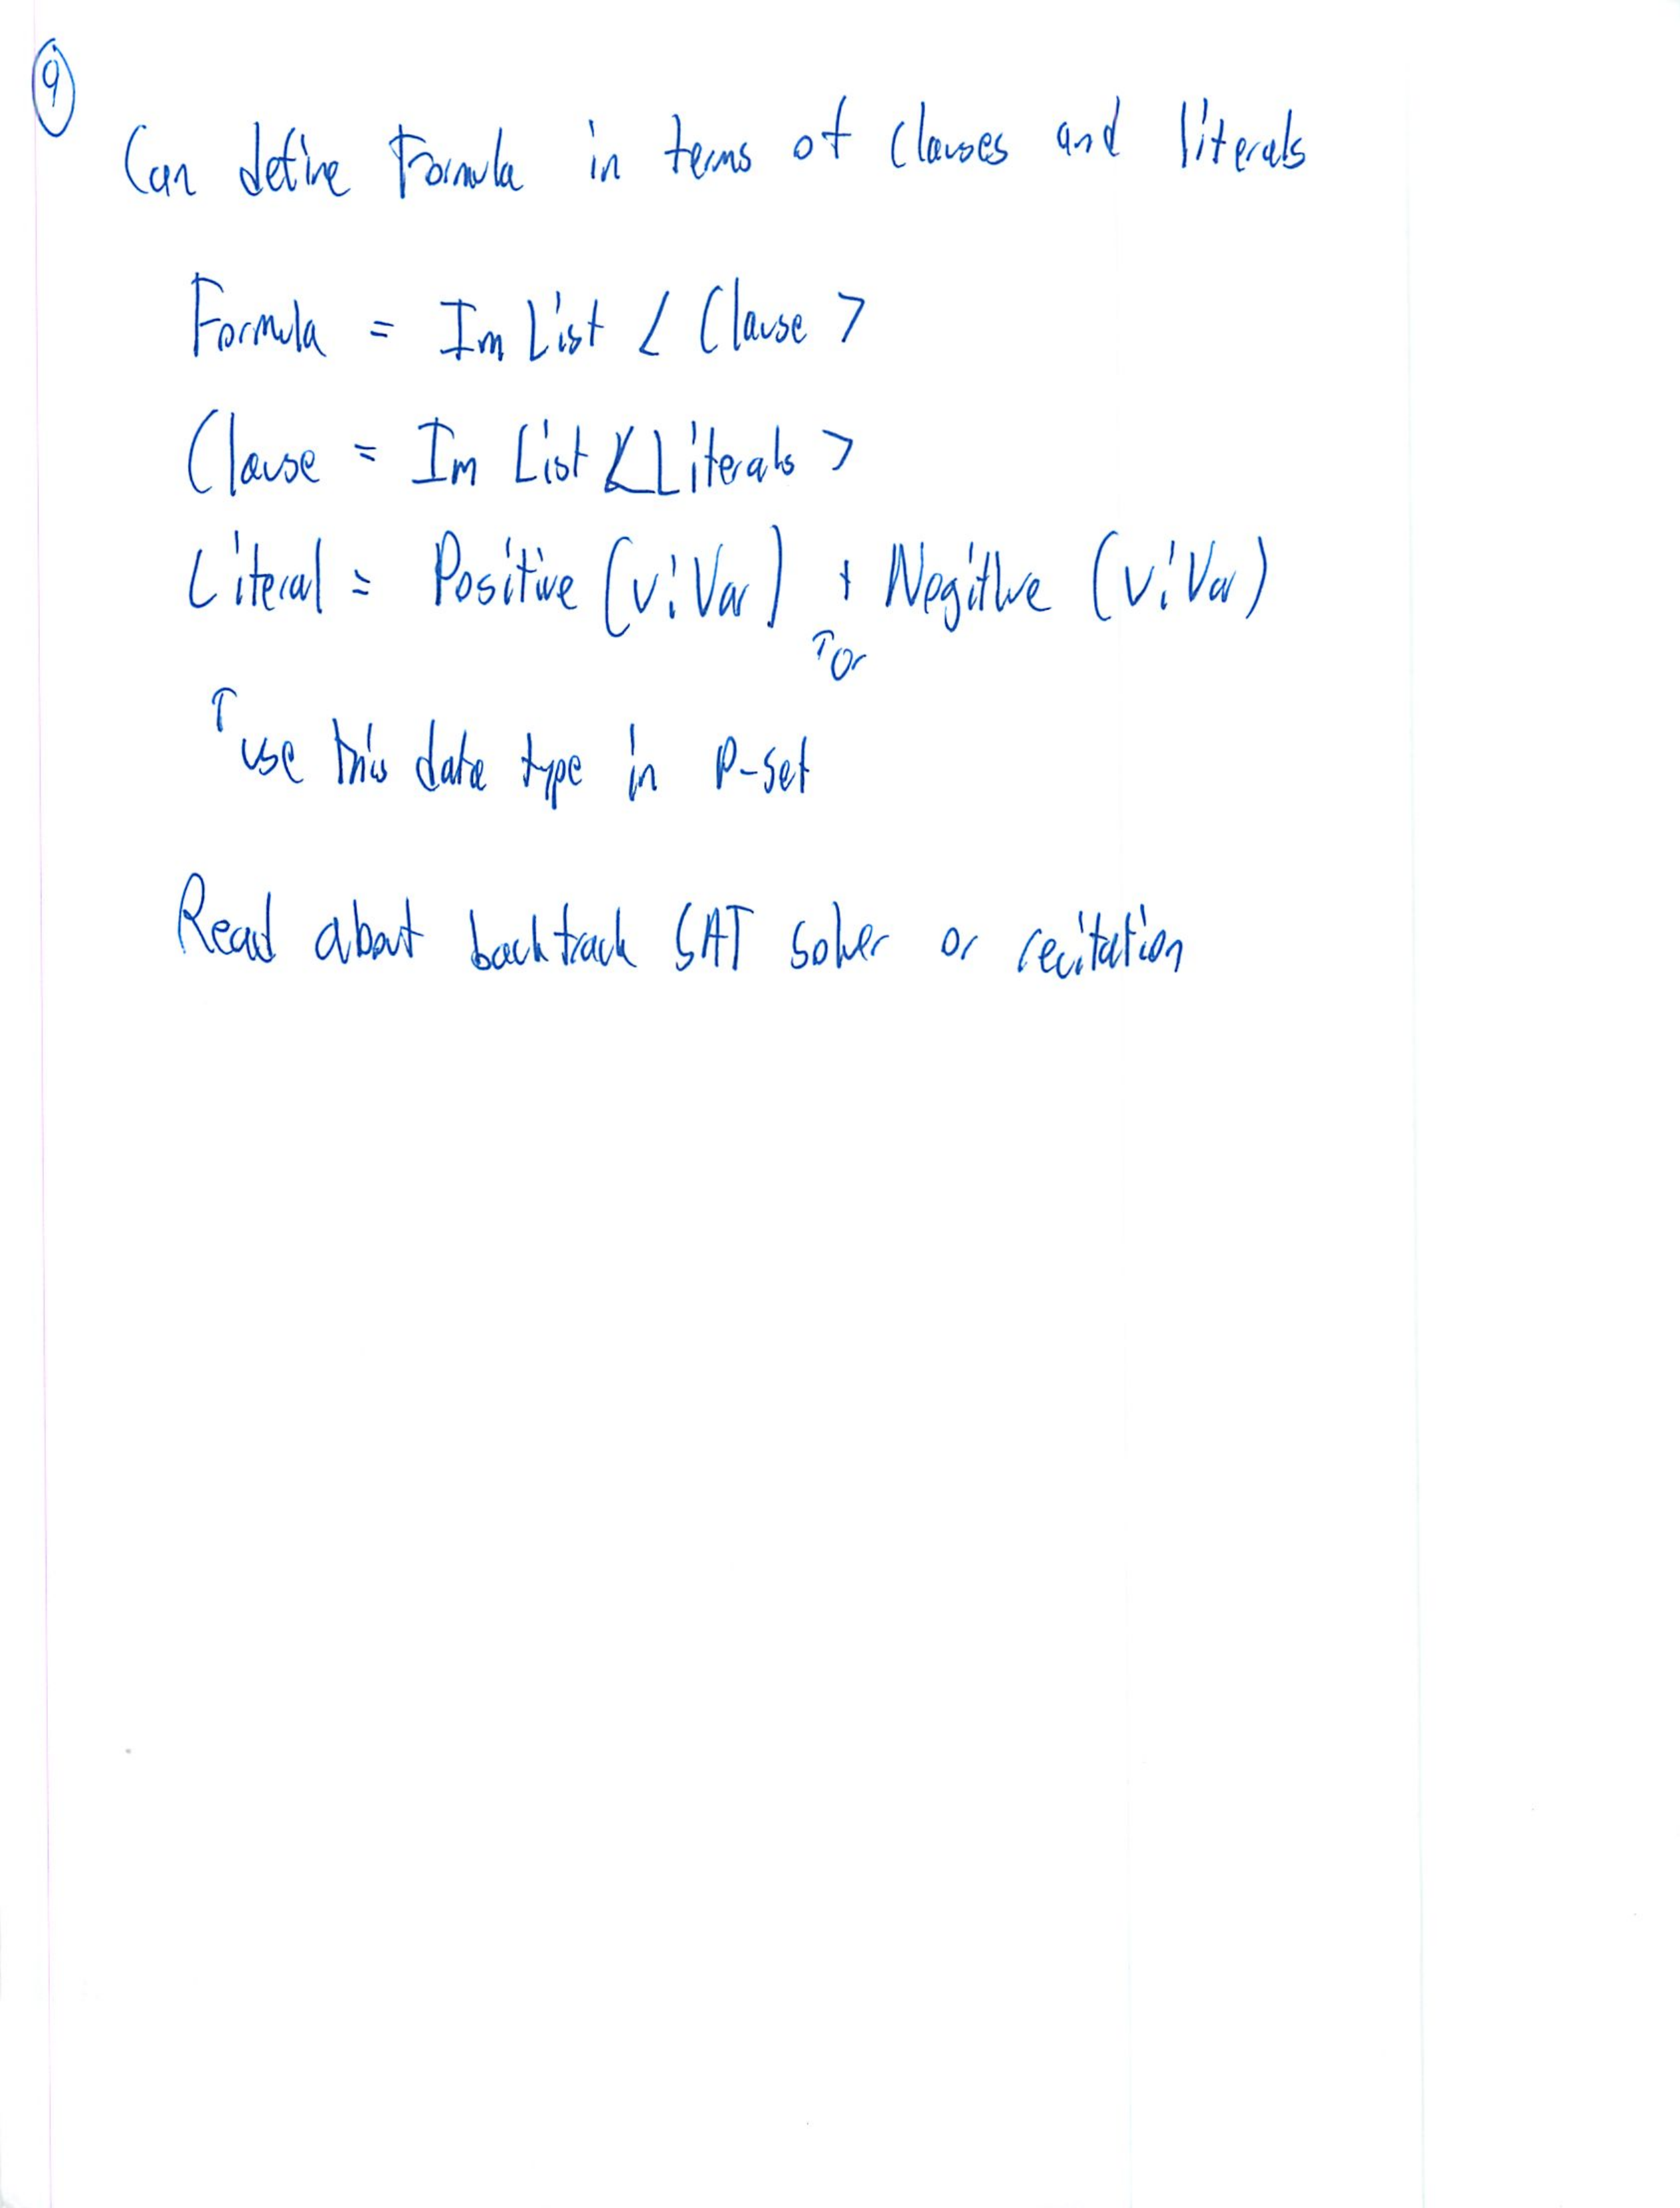 9
Can define Formula in terms of clauses and literals
Formula = Im List < Clause >
Clause = Im List < Literals >
Literal = Positive (v: Var) + Negitive (v: Var)
↑ or
↑ use this data type in p-set
Read about backtrack SAT solver or recitation